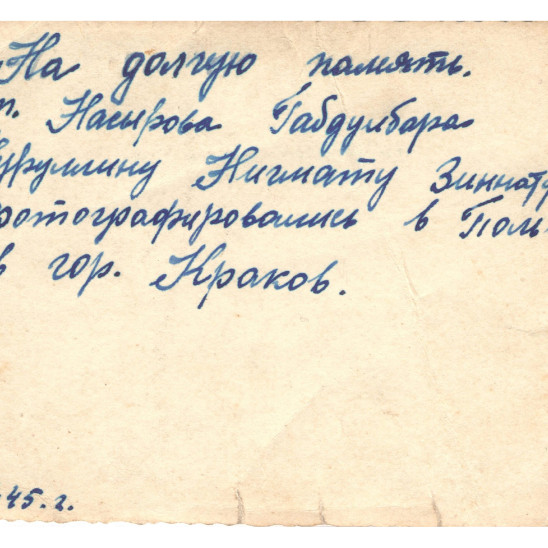 На долгую память.
т. Насырова Габдулбара
уфуллину Нигмату Зиннату
фотографировались в Поль
в гор. Краков.
45. г.